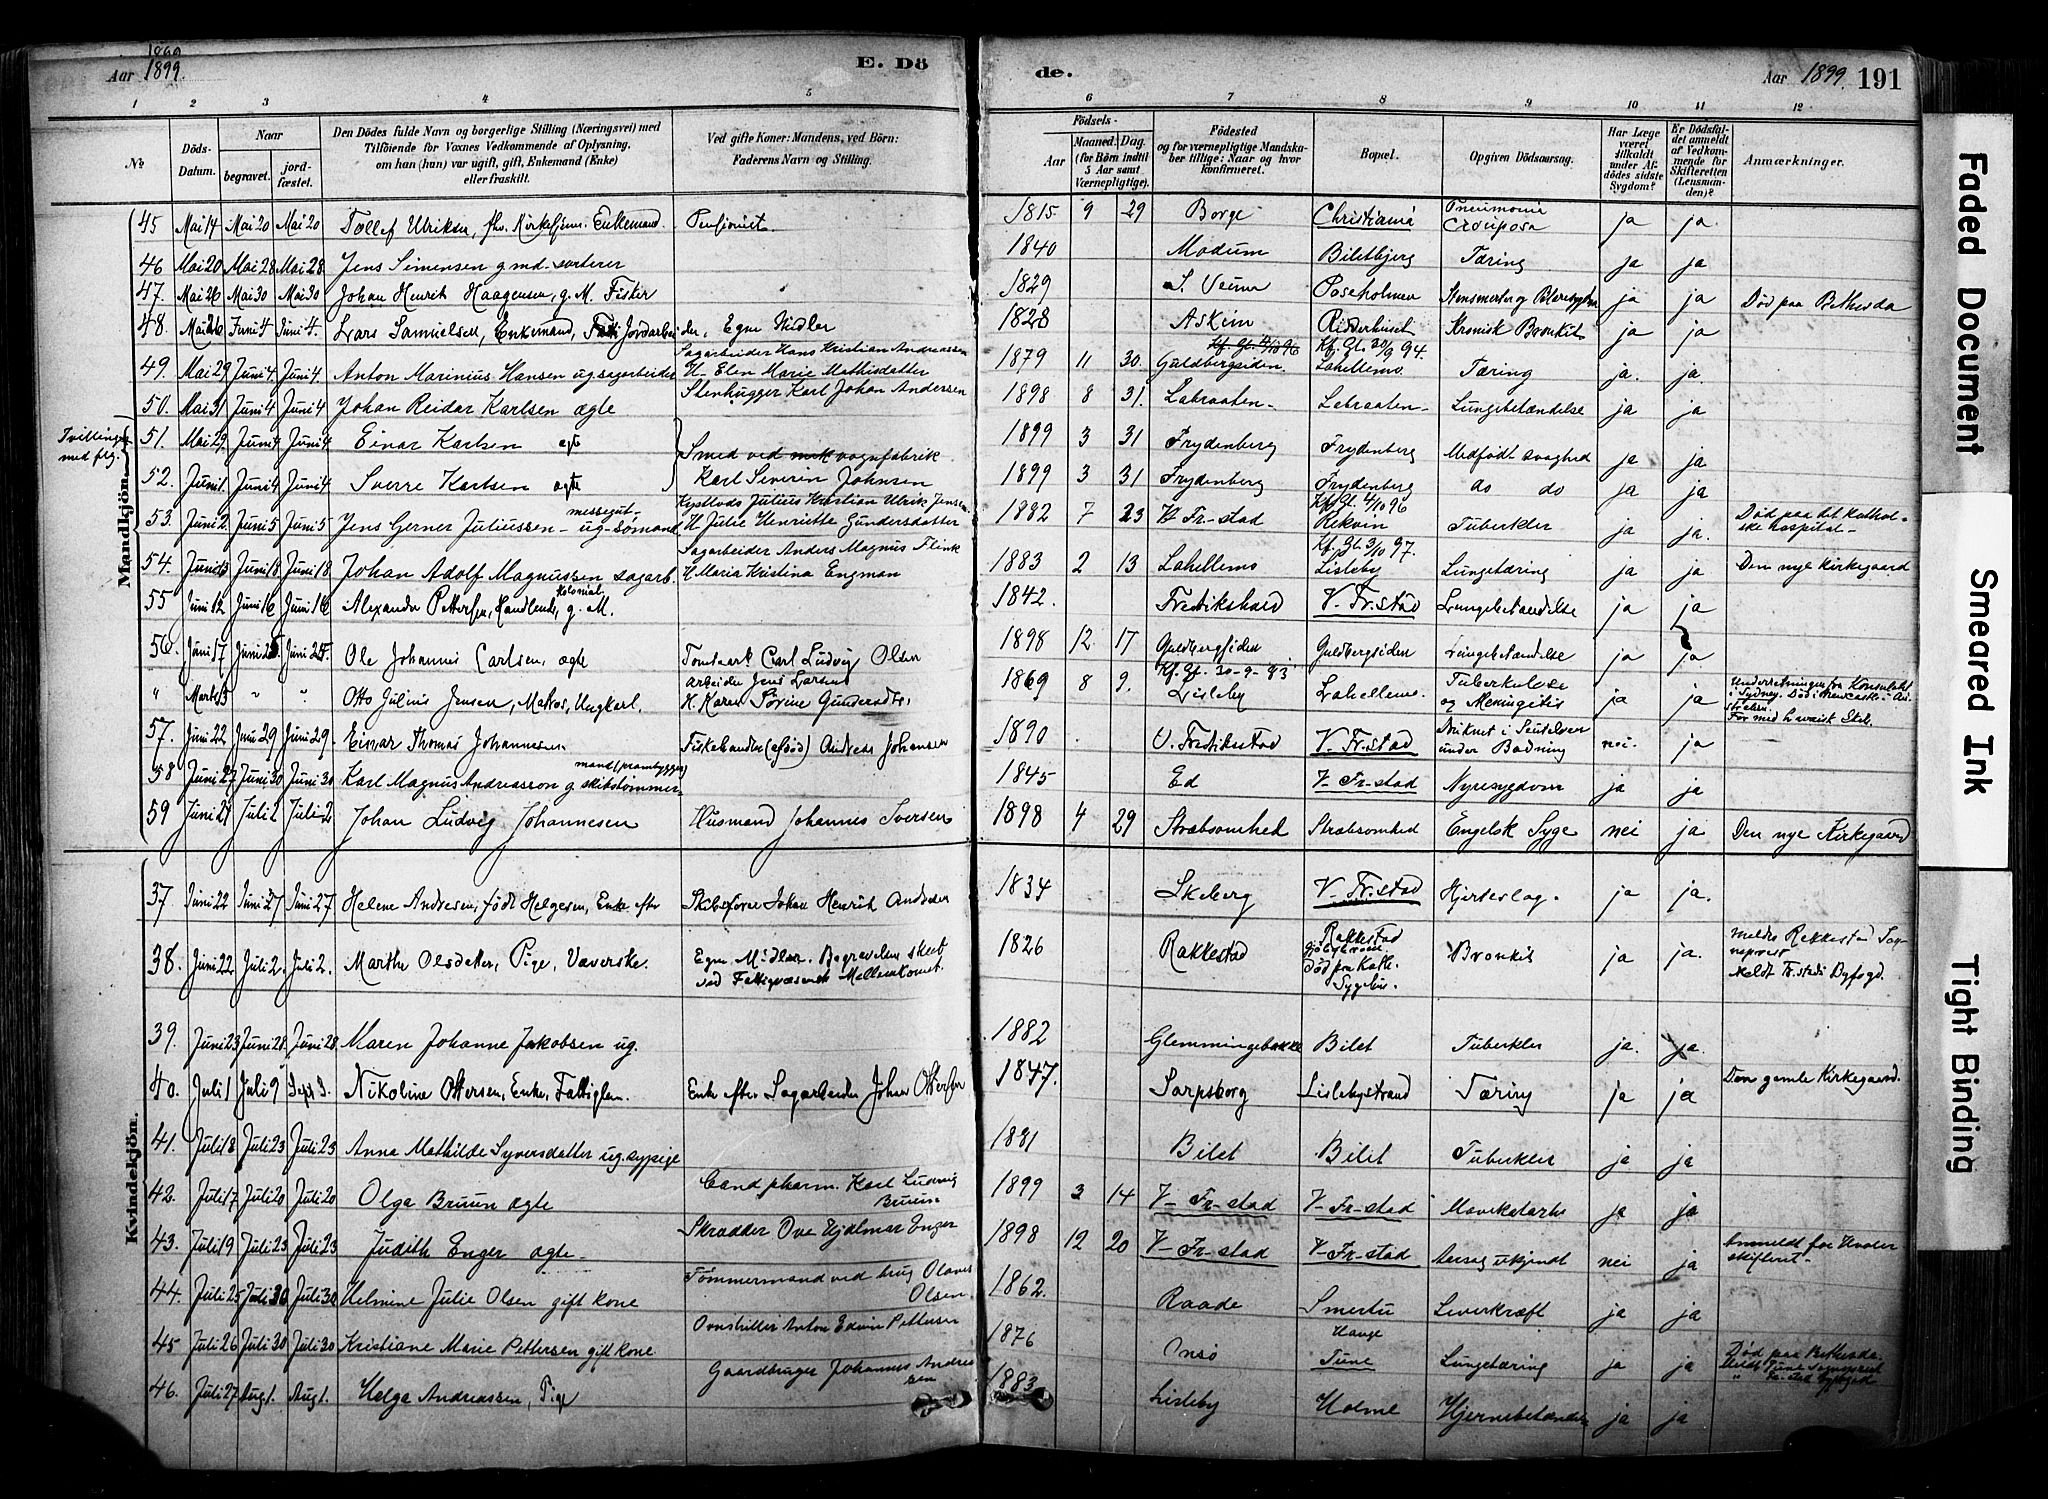 1899
Aar 1899. E. Dö
de. Aar 1899. 191
1 2 3 4 5 6 7 8 9 10 11 12
№
Döds-Datum.
Naar
begravet.
jord-fæstet.
Den Dödes fulde Navn og borgerlige Stilling (Næringsvei) med
Tilföiende for Voxnes Vedkommende af Oplysning.
om han (hun) var ugift, gift, Enkemand (Enke)
eller fraskilt.
Ved gifte Koner: Mandens, ved Börn:
Faderens Navn og Stilling.
Födsels-
Aar
Maaned. Dag.
(for Börn indtil
5 Aar samt
Værnepligtige).
Födested
og for værnepligtige Mandska-
ber tillige: Naar og hvor
konfirmeret.
Bopæl.
Opgiven Dödsaarsag.
Har Læge
været
tilkaldt
under Af-
dödes sidste
Sygdom?
Er Dödsfal-
det anmeldt
af Vedkom-
mende for
Skifteretten
(Lensman-
den)?
Anmærkninger.
Mandkjön.
45 Mai 14 Mai 20 Mai 20 Tollef Ulriksen, fhv. Kirketjener. Enkemand. Pensionist. 1815 9 29 Borge Christiania Pneumonia Crouposa ja ja.
46 Mai 20 Mai 28 Mai 28 Jens Simensen g md. sorterer 1840 Modum Biletbjerg Tæring ja ja
47. Mai 26 Mai 30 Mai 30 Johan Henrik Haagensen, g. M. Fisker 1829 Poseholmen ja ja Död paa Bethesda
48. Mai 26 Juni 4 Juni 4. Lars Samuelsen, Enkemand, Jordarbeider. Egne Midler 1828 Askim Ridderhuset Kronisk Bronkit ja ja
49. Mai 29 Juni 4. Juni 4. Anton Marinius Hansen ug sagarbeider Sagarbeider Hans Kristian Andreassen H– Elen Marie Mathisdatter 1879 11 30. Guldbergsiden. Kf. Gl. 30/9 94. Lahellemo. Tæring ja. ja.
50. Mai 31 Juni 4 Juni 4 Johan Reidar Karlsen ægte Stenhugger Karl Johan Andersen 1898 8 31. Labraaten– Labraaten– Lungebetændelse ja ja
Tvillinger med flg.
51. Mai 29 Juni 4 Juni 4 Einar Karlsen ægte 1899 3 31 Frydenberg Frydenberg Medfödt svaghed ja ja
Smed ved vognfabrik. Karl Severin Johnsen
52. Juni 1. Juni 4 Juni 4 Sverre Karlsen ægte 1899 3 31 Frydenberg Frydenberg do do ja ja
53. Juni 2. Juni 5 Juni 5 Jens Gerner Juliussen– messegut– ug–sömand Julius Kristian Ulrik Jensen H Julie Henriette Gundersdatter 1882 7 23 Fr–stad Kf. Gl. 4/10 96 Rekvin Tuberkler ja ja. Död paa det kathol-ske hospital–
54. Juni 13 Juni 18 Juni 18 Johan Adolf Magnussen sagarb. Sagarbeider Anders Magnus Flink H Maria Kristina Engman 1883 2 13 Lahellemo Kf. Gl. 3/10 97. Lisleby Lungetæring ja ja Den nye Kirkegaard
55 Juni 12 Juni 16 Juni 16 Alexander Pettersen, Kolonial Handlende, g. M. 1842. Fredrikshald V. Fr.stad Lungebetændelse ja ja
56. Juni 17 Juni 25. Juni 25. Ole Johannes Carlsen, ægte Tomtearb. Carl Ludvig Olsen 1898 12 17 Guldbergsiden Guldbergsiden Lungebetændelse ja ja
" Marts 3 " " Otto Julius Jensen, Matros, Ungkarl. Arbeider Jens Larsen H. Karen Sörine Gundersdtr. 1869 8 9. Kf. Gl. 30-9-83 Lisleby Lahellemo. Tuberkulose og Meningitis ja ja Underretningen fra Konsulatet i Sydney. Död i Newcastle i Au-stralien.
57. Juni 22 Juni 29 Juni 29. Einar Thomas Johannesen. Fiskehandler (afdöd) Andreas Johansen 1890 . V. Fredriksstad V–Fr.stad Druknet i Seutelven under Badning nei. ja
58 Juni 27 Juni 30 Juni 30 Karl Magnus Andreasson g skibstömmermand (prambygger) 1845 Ed V–Fr–stad Nyresygdom ja ja
59 Juni 27 Juli 2 Juli 2 Johan Ludvig Johannesen Husmand Johannes Iversen 1898 4 29 Stræbsomhed Stræbsomhed Engelsk Syge nei ja. Den nye Kirkegaard
Kvindekjön.
37 Juni 22 Juni 27 Juni 27 Helene Andresen, födt Helgesen, Enke efter Skibsförer Johan Henrik Andresen 1834 Skeberg V–Fr.stad Hjerteslag. ja ja.
38. Juni 22 Juli 2. Juli 2. Marthe Olsdatter, Pige, Væverske. Egne Midler. Begravelsen skeet ved Fattigvæsenets Mellemkomst. 1826 Rakkestad Rakkestad Död paa Kath. Sygehus. Bronkit ja ja. Meldt Rakkestad Sog-neprest Meldt Fr.stads Byfogd.
39. Juni 23 Juni 28. Juni 28 Maren Johanne Jakobsen ug. 1882 Glemmingebakke Bilet Tuberkler ja. ja.
40. Juli 1 Juli 9 Sept 3. Nikoline Ottersen, Enke, Fattiglem. Enke efter Sagarbeider Johan Ottersen 1847. Sarpsborg Lislebystrand Tæring ja ja Den gamle Kirkegaard.
41. Juli 18 Juli 23 Juli 23 Anna Mathilde Syversdatter ug. sypige 1881 Bilet Bilet Tuberkler ja ja
42. Juli 17 Juli 20 Juli 20 Olga Bruun ægte Cand pharm. Karl Ludvig Bruun 1899 3 14 V–Fr–stad V–Fr–stad Mavekatarhe ja ja
43. Juli 19 Juli 23 Juli 23 Judith Enger ægte– Skrædder Ove Hjalmar Enger 1898 12 20 V–Fr–stad V–Fr–stad Aarsag ukjendt nei ja Anmeldt for Under skifteret–
44. Juli 25 Juli 30 Juli 30 Helmine Julie Olsen gift kone Tömmermand ved brug Olaves Olsen. 1862. Raade Smertu Leverkræft ja ja
45 Juli 26 Juli 30 Juli 30 Kristiane Marie Pettersen gift kone Anton Edvin Pettersen 1876 Onsö Hauge Tune Lungetæring ja ja Död paa Bethesda. Meldt Tune Sogneprest " Fr.stad byfogd
46. Juli 27 Aug 1. Aug 1. Helga Andreassen, Pige Gaardbruger Johannes Andreassen 1883 Lisleby Holme Hjernebetændelse ja ja
Faded Document
Smeared Ink
Tight Binding